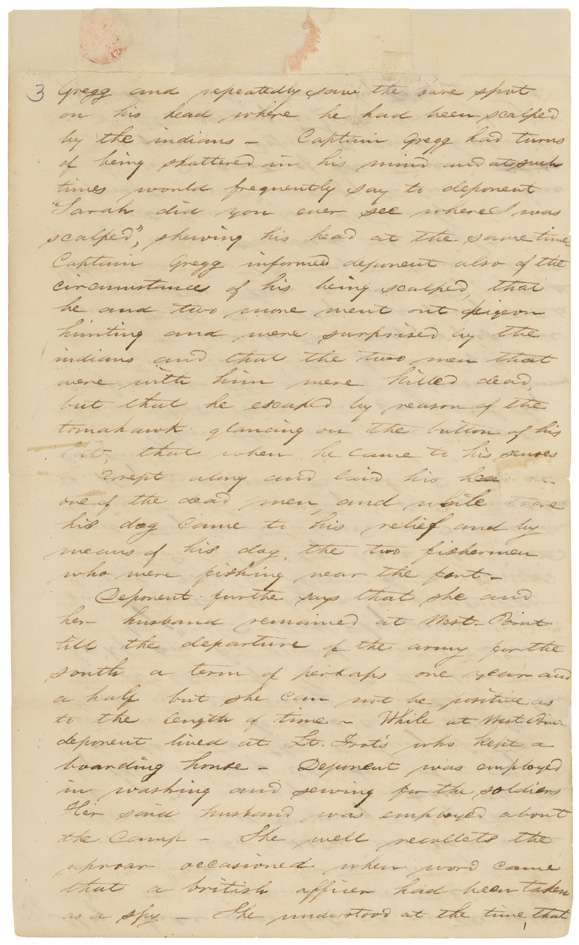 3 Gregg and repeatedly saw the bare spot
on his head where he had been scalped
by the indians – Captain Gregg had turns
of being shattered in his mind and at such
times would frequently say to deponent
"Sarah did you ever see where I was
scalped", shewing his head at the same time
Captain Gregg informed deponent also of the
circumstances of his being scalped, that
he and two more went out pigeon
hunting and were surprised by the
indians and that the two men that
were with him were killed dead,
but that he escaped by reason of the
tomahawk glancing on the button of his
that when he came to his senses
crept along and laid his
one of the dead men, and while there
his dog came to his relief and by
means of his dog, the two fishermen
who were fishing near the fort –
Deponent further says that she and
her husband remained at West-Point
till the departure of the army for the
south a term of perhaps one year and
a half but she can not be positive as
to the length of time – While at West Point
deponent lived at Lt. Foot's who kept a
boarding house – Deponent was employed
in washing and sewing for the soldiers
Her said husband was employed about
the Camp – She well recollects the
uproar occasioned when word came
that a british officer had been taken
as a spy – She understood at the time, that